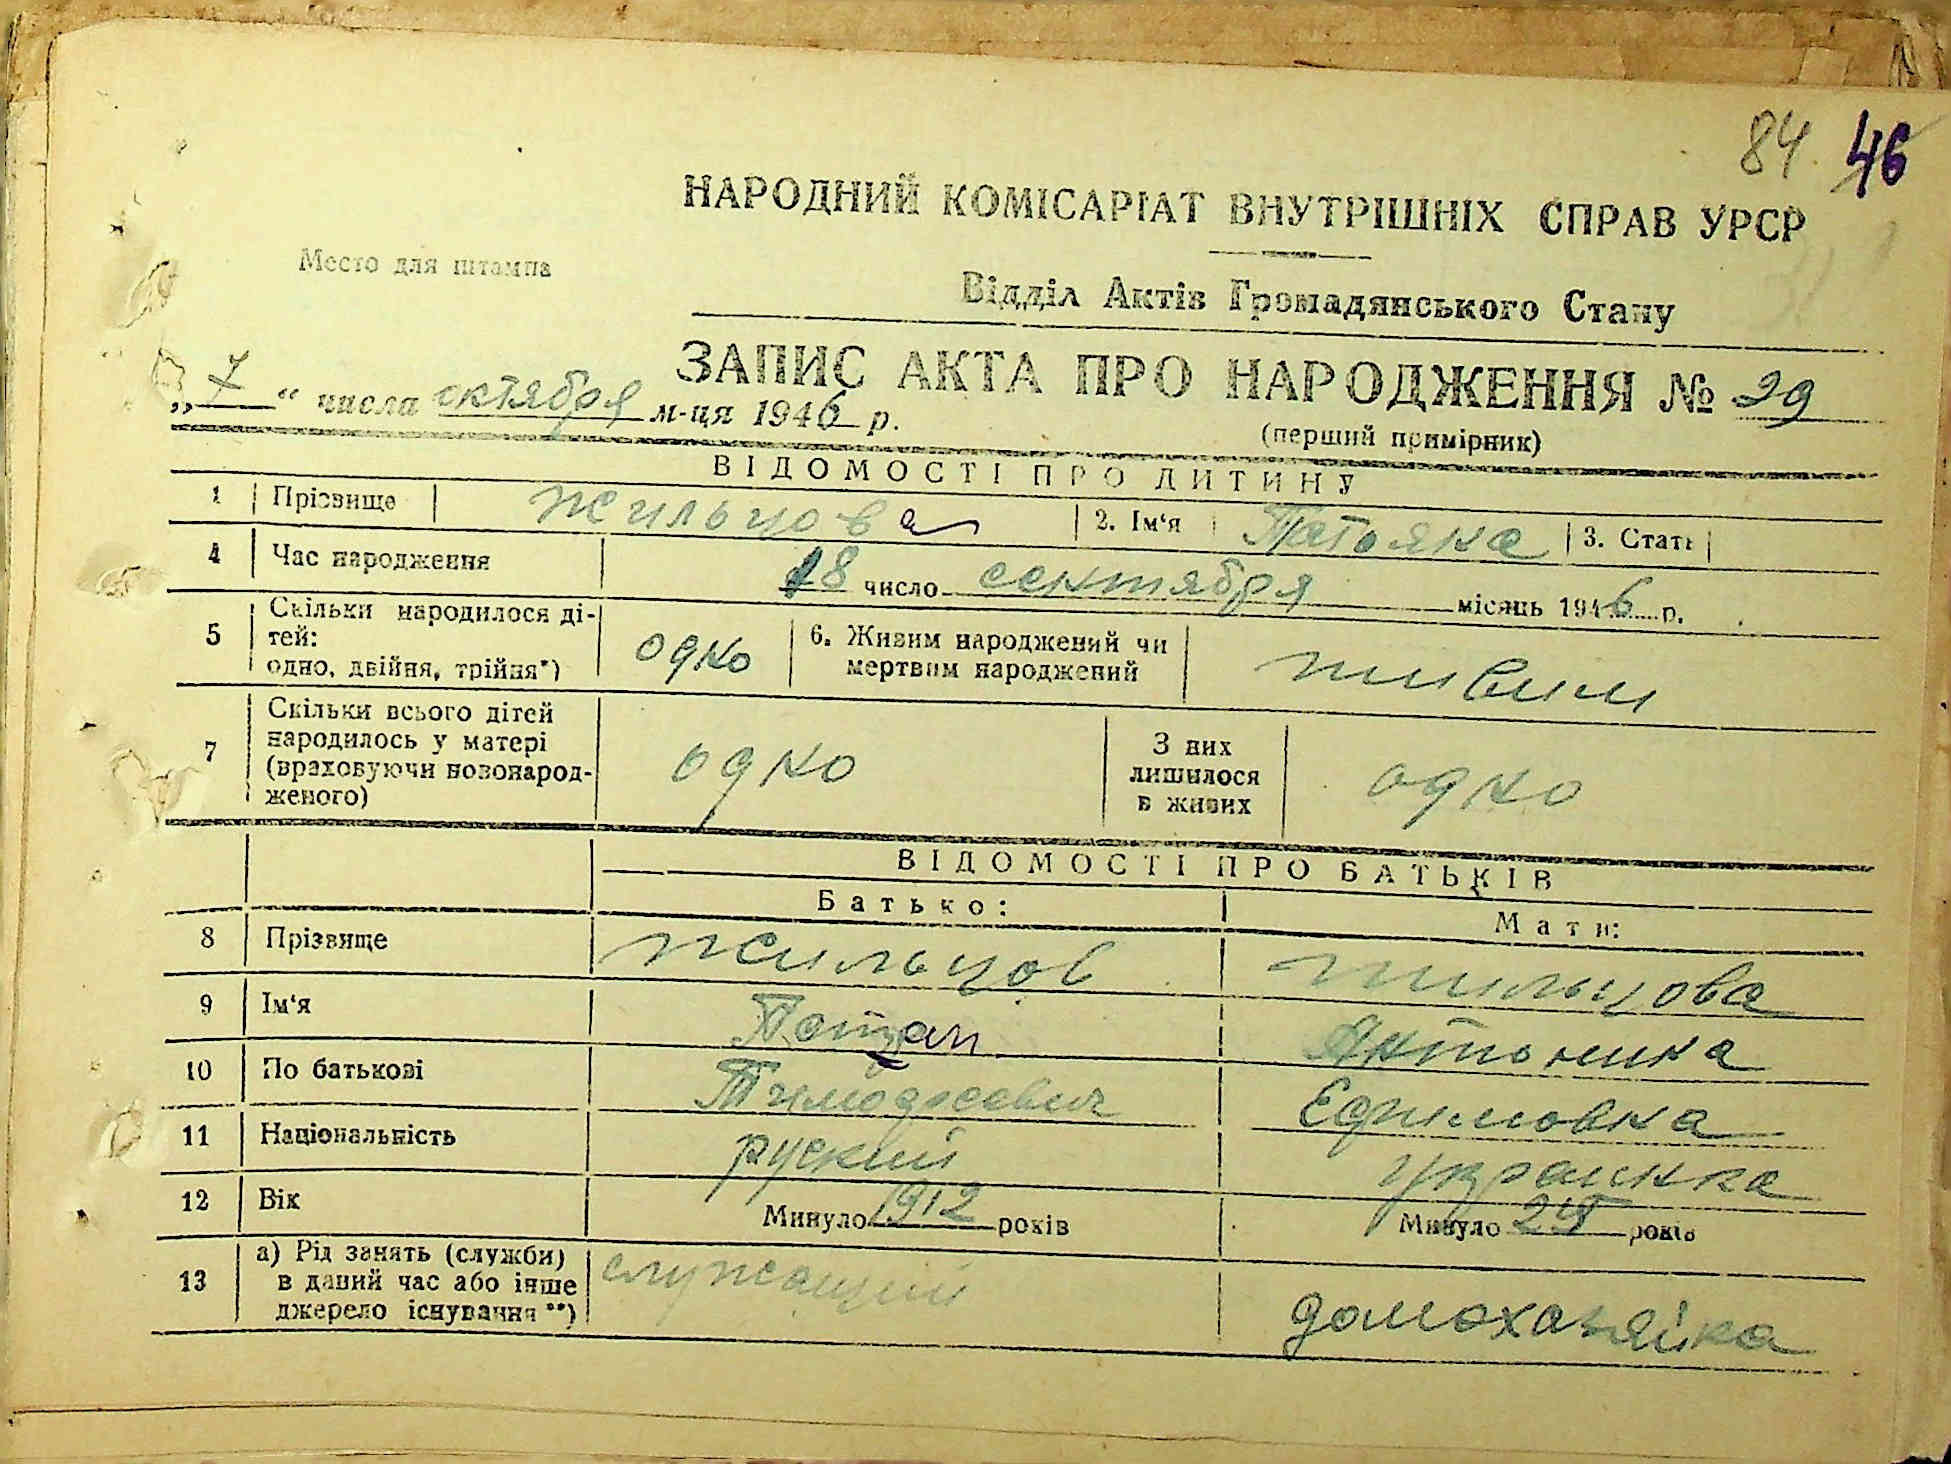 84 46
НАРОДНИЙ КОМІСАРІАТ ВНУТРІШНІХ СПРАВ УРСР
Место для штампа
Відділ Актів Громадянського Стану
ЗАПИС АКТА ПРО НАРОДЖЕННЯ № 29
„7“ числа октября м-ця 1946 р.
(перший примірник)
ВІДОМОСТІ ПРО ДИТИНУ
1 Прізвище Жильцова 2. Ім‘я Татьяна 3. Стать
4 Час народження 18 число сентября місяць 1946 р.
5 Скільки народилося ді-
тей:
одно, двійня, трійня*) одно 6. Живим народжений чи
мертвим народжений живим
7 Скільки всього дітей
народилось у матері
(враховуючи новонарод-
женого) одно З них
лишилося
в живих одно
ВІДОМОСТІ ПРО БАТЬКІВ
Батько: Мати:
8 Прізвище Жильцов Жильцова
9 Ім‘я Антонина
10 По батькові Тимофеевич Ефимовна
11 Національність руский украинка
12 Вік Минуло 1912 років Минуло років
13 а) Рід занять (служби)
в даний час або інше
джерело існування **) служащий домохазяйка